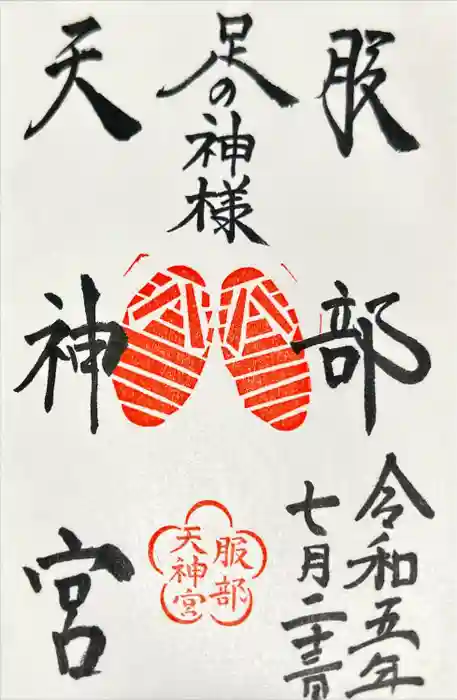 足の神様
服部
天神宮
令和五年
七月二十三日
服部
天神宮